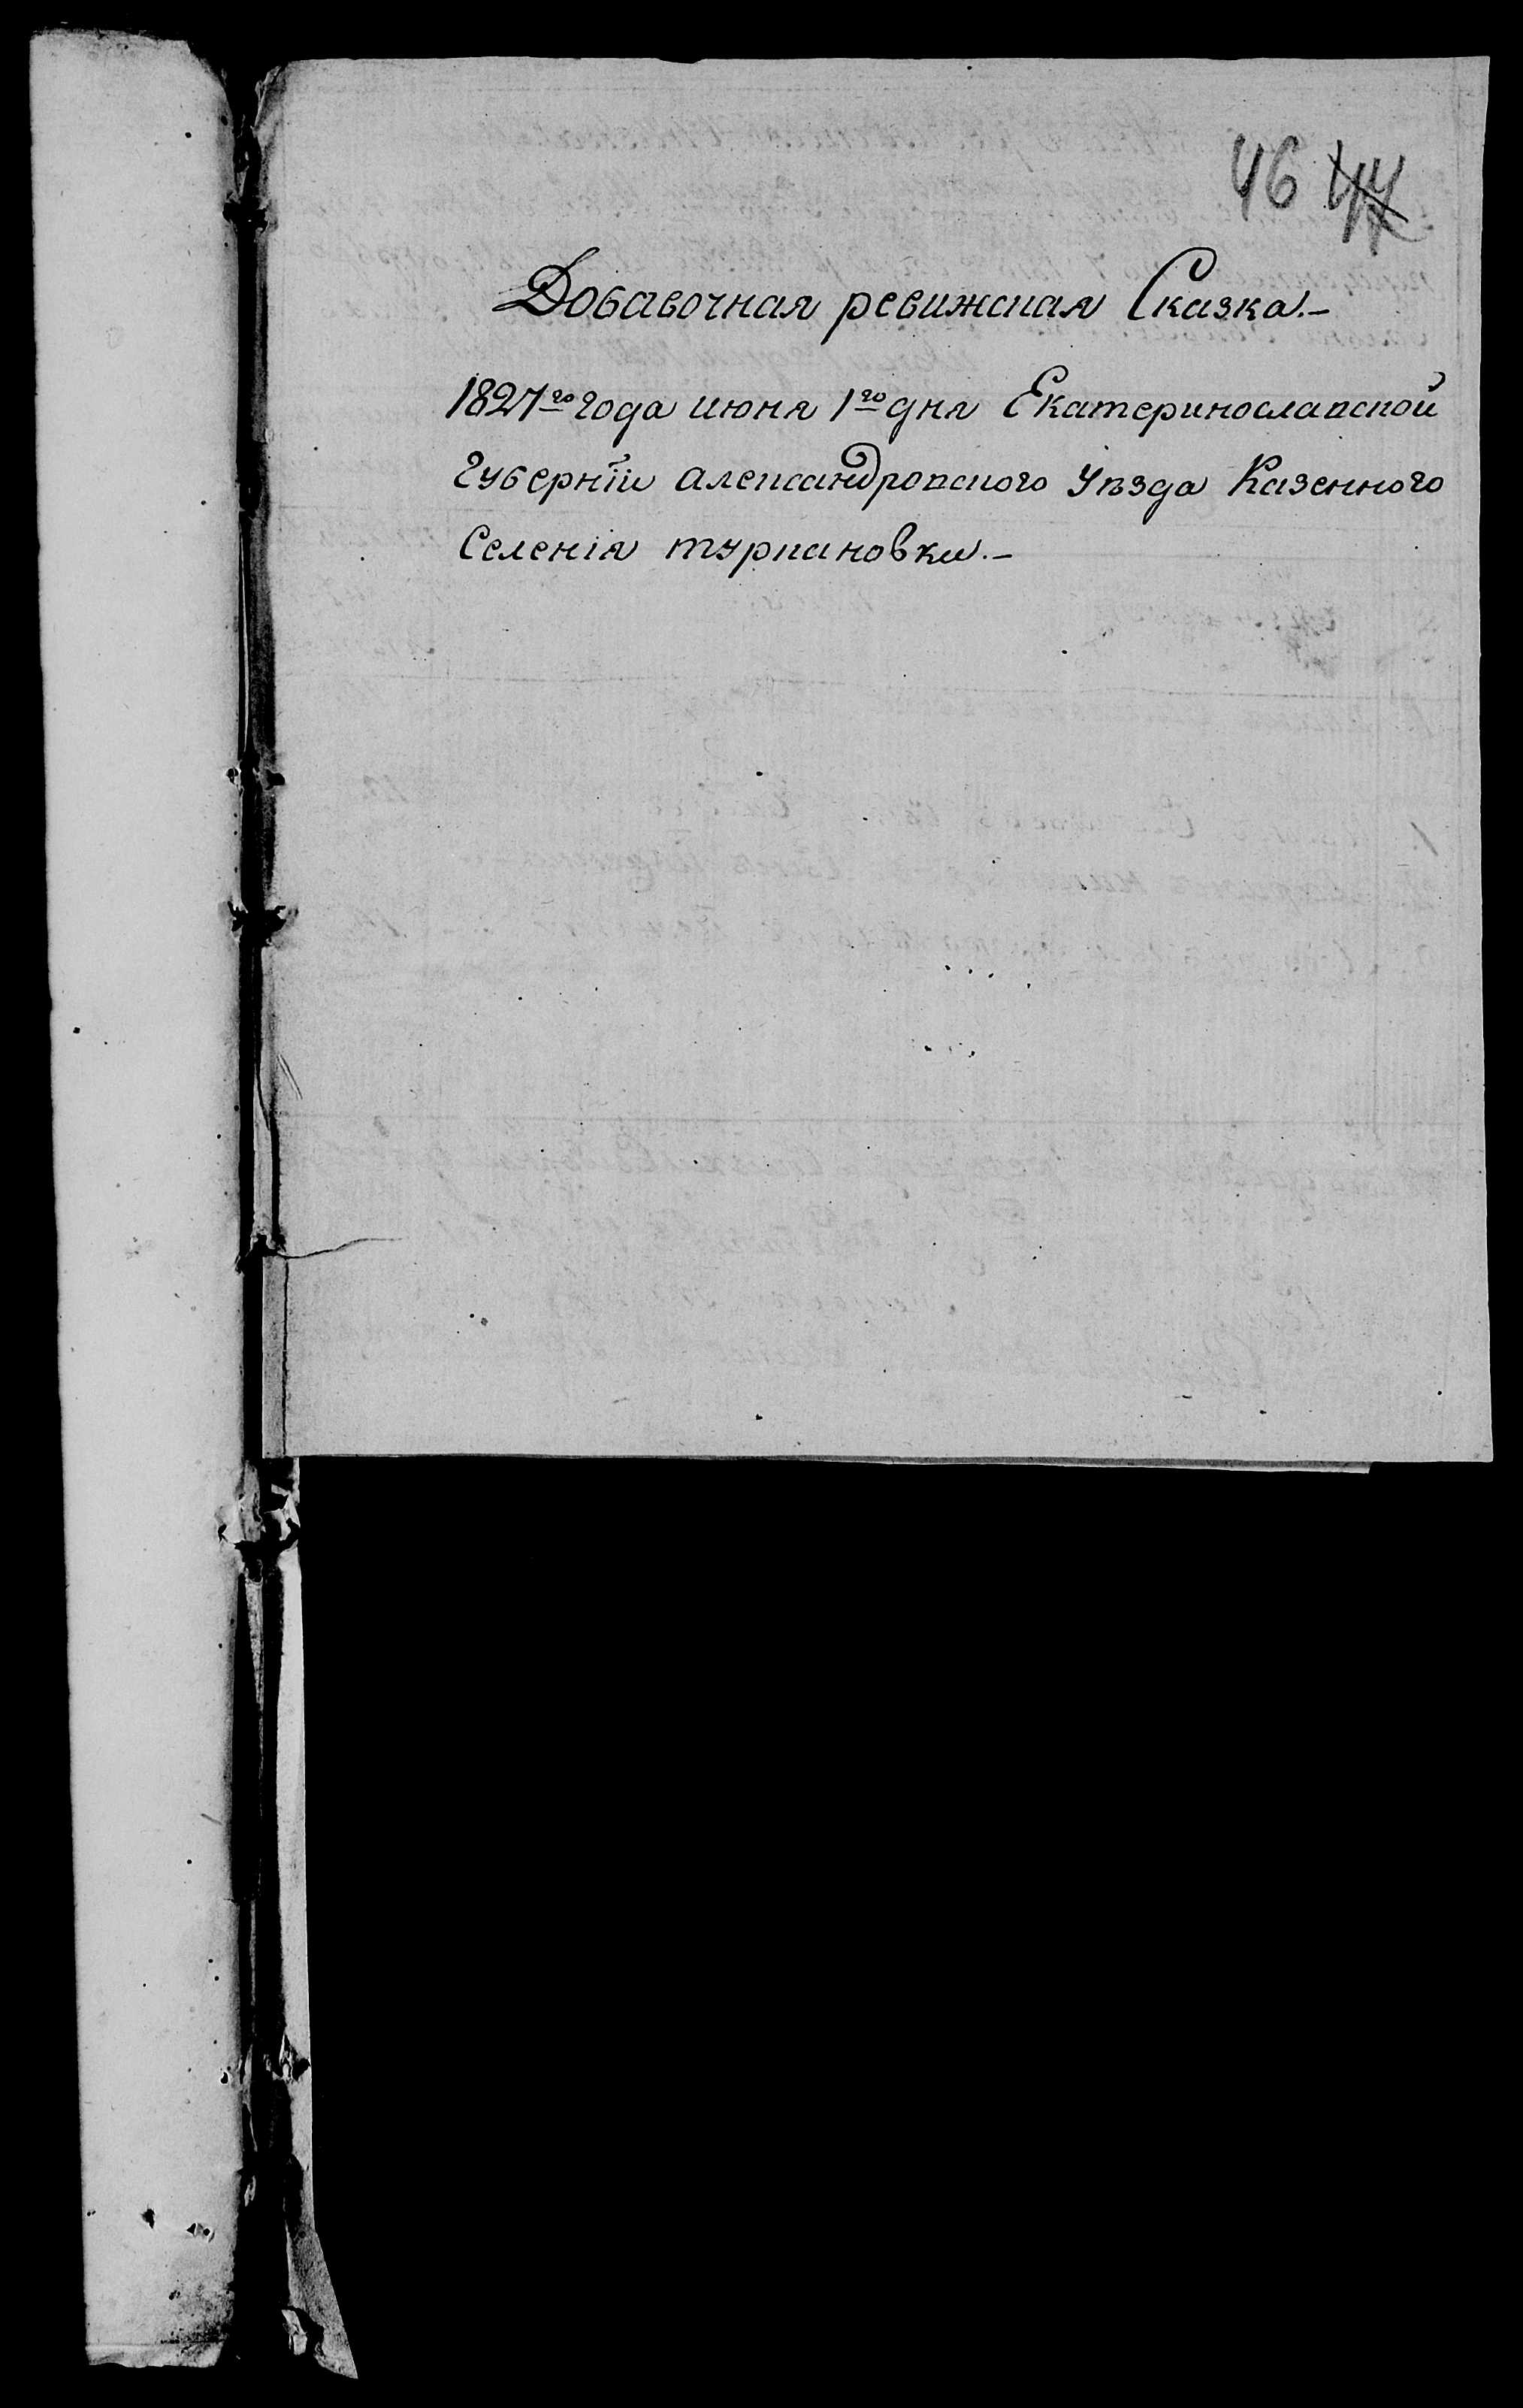 46 47
Добавочная ревижская Сказка.–
1827го года июня 1го дня Екатеринославской
Губернїи александровского Уѣзда Казенного
Селенія туркановки.–